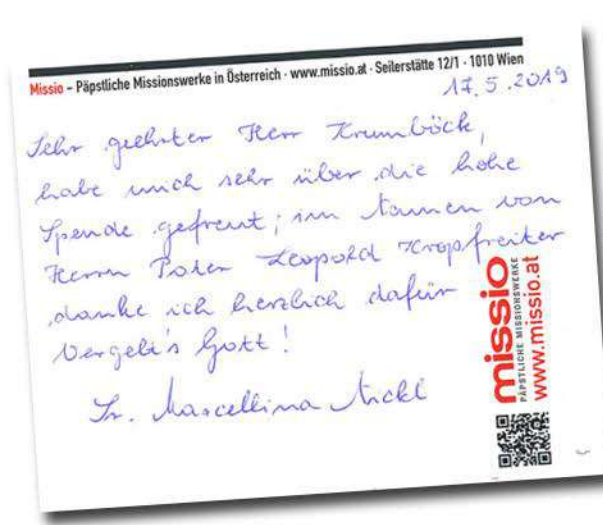 Missio – Päpstliche Missionswerke in Österreich · www.missio.at · Seilerstätte 12/1 · 1010 Wien
17.5.2019
Sehr geehrter Herr Krumböck,
habe mich sehr über die hohe
Spende gefreut; im Namen von
Herrn Pater Leopold Kropfreiter
danke ich herzlich dafür
Vergelt's Gott!
Sr. Marcellina Nickl
missio
PÄPSTLICHE MISSIONSWERKE
www.missio.at